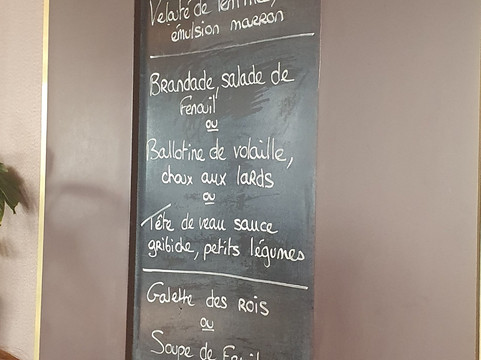 Velouté de lentilles,
émulsion marron
Brandade, salade de
Fenouil
ou
Ballotine de volaille,
choux aux lards
ou
Tête de veau sauce
gribiche, petits légumes
Galette des ROIS
ou
Soupe de